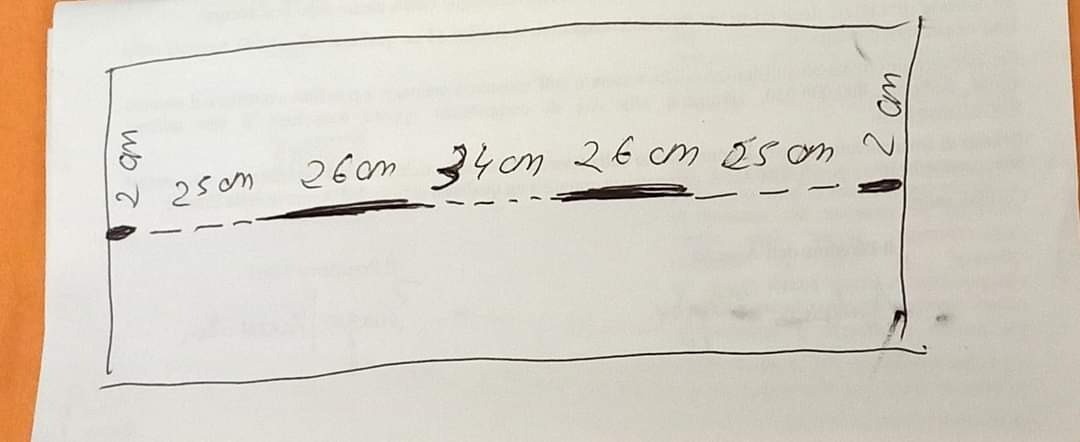 2 cm 25 cm 26 cm 34 cm 26 cm 25 cm 2 cm